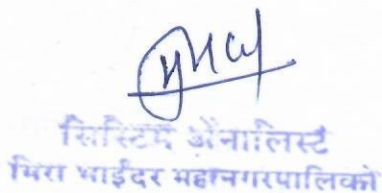 सिस्टिम अॅनालिस्ट
मिरा भाईंदर महानगरपालिका